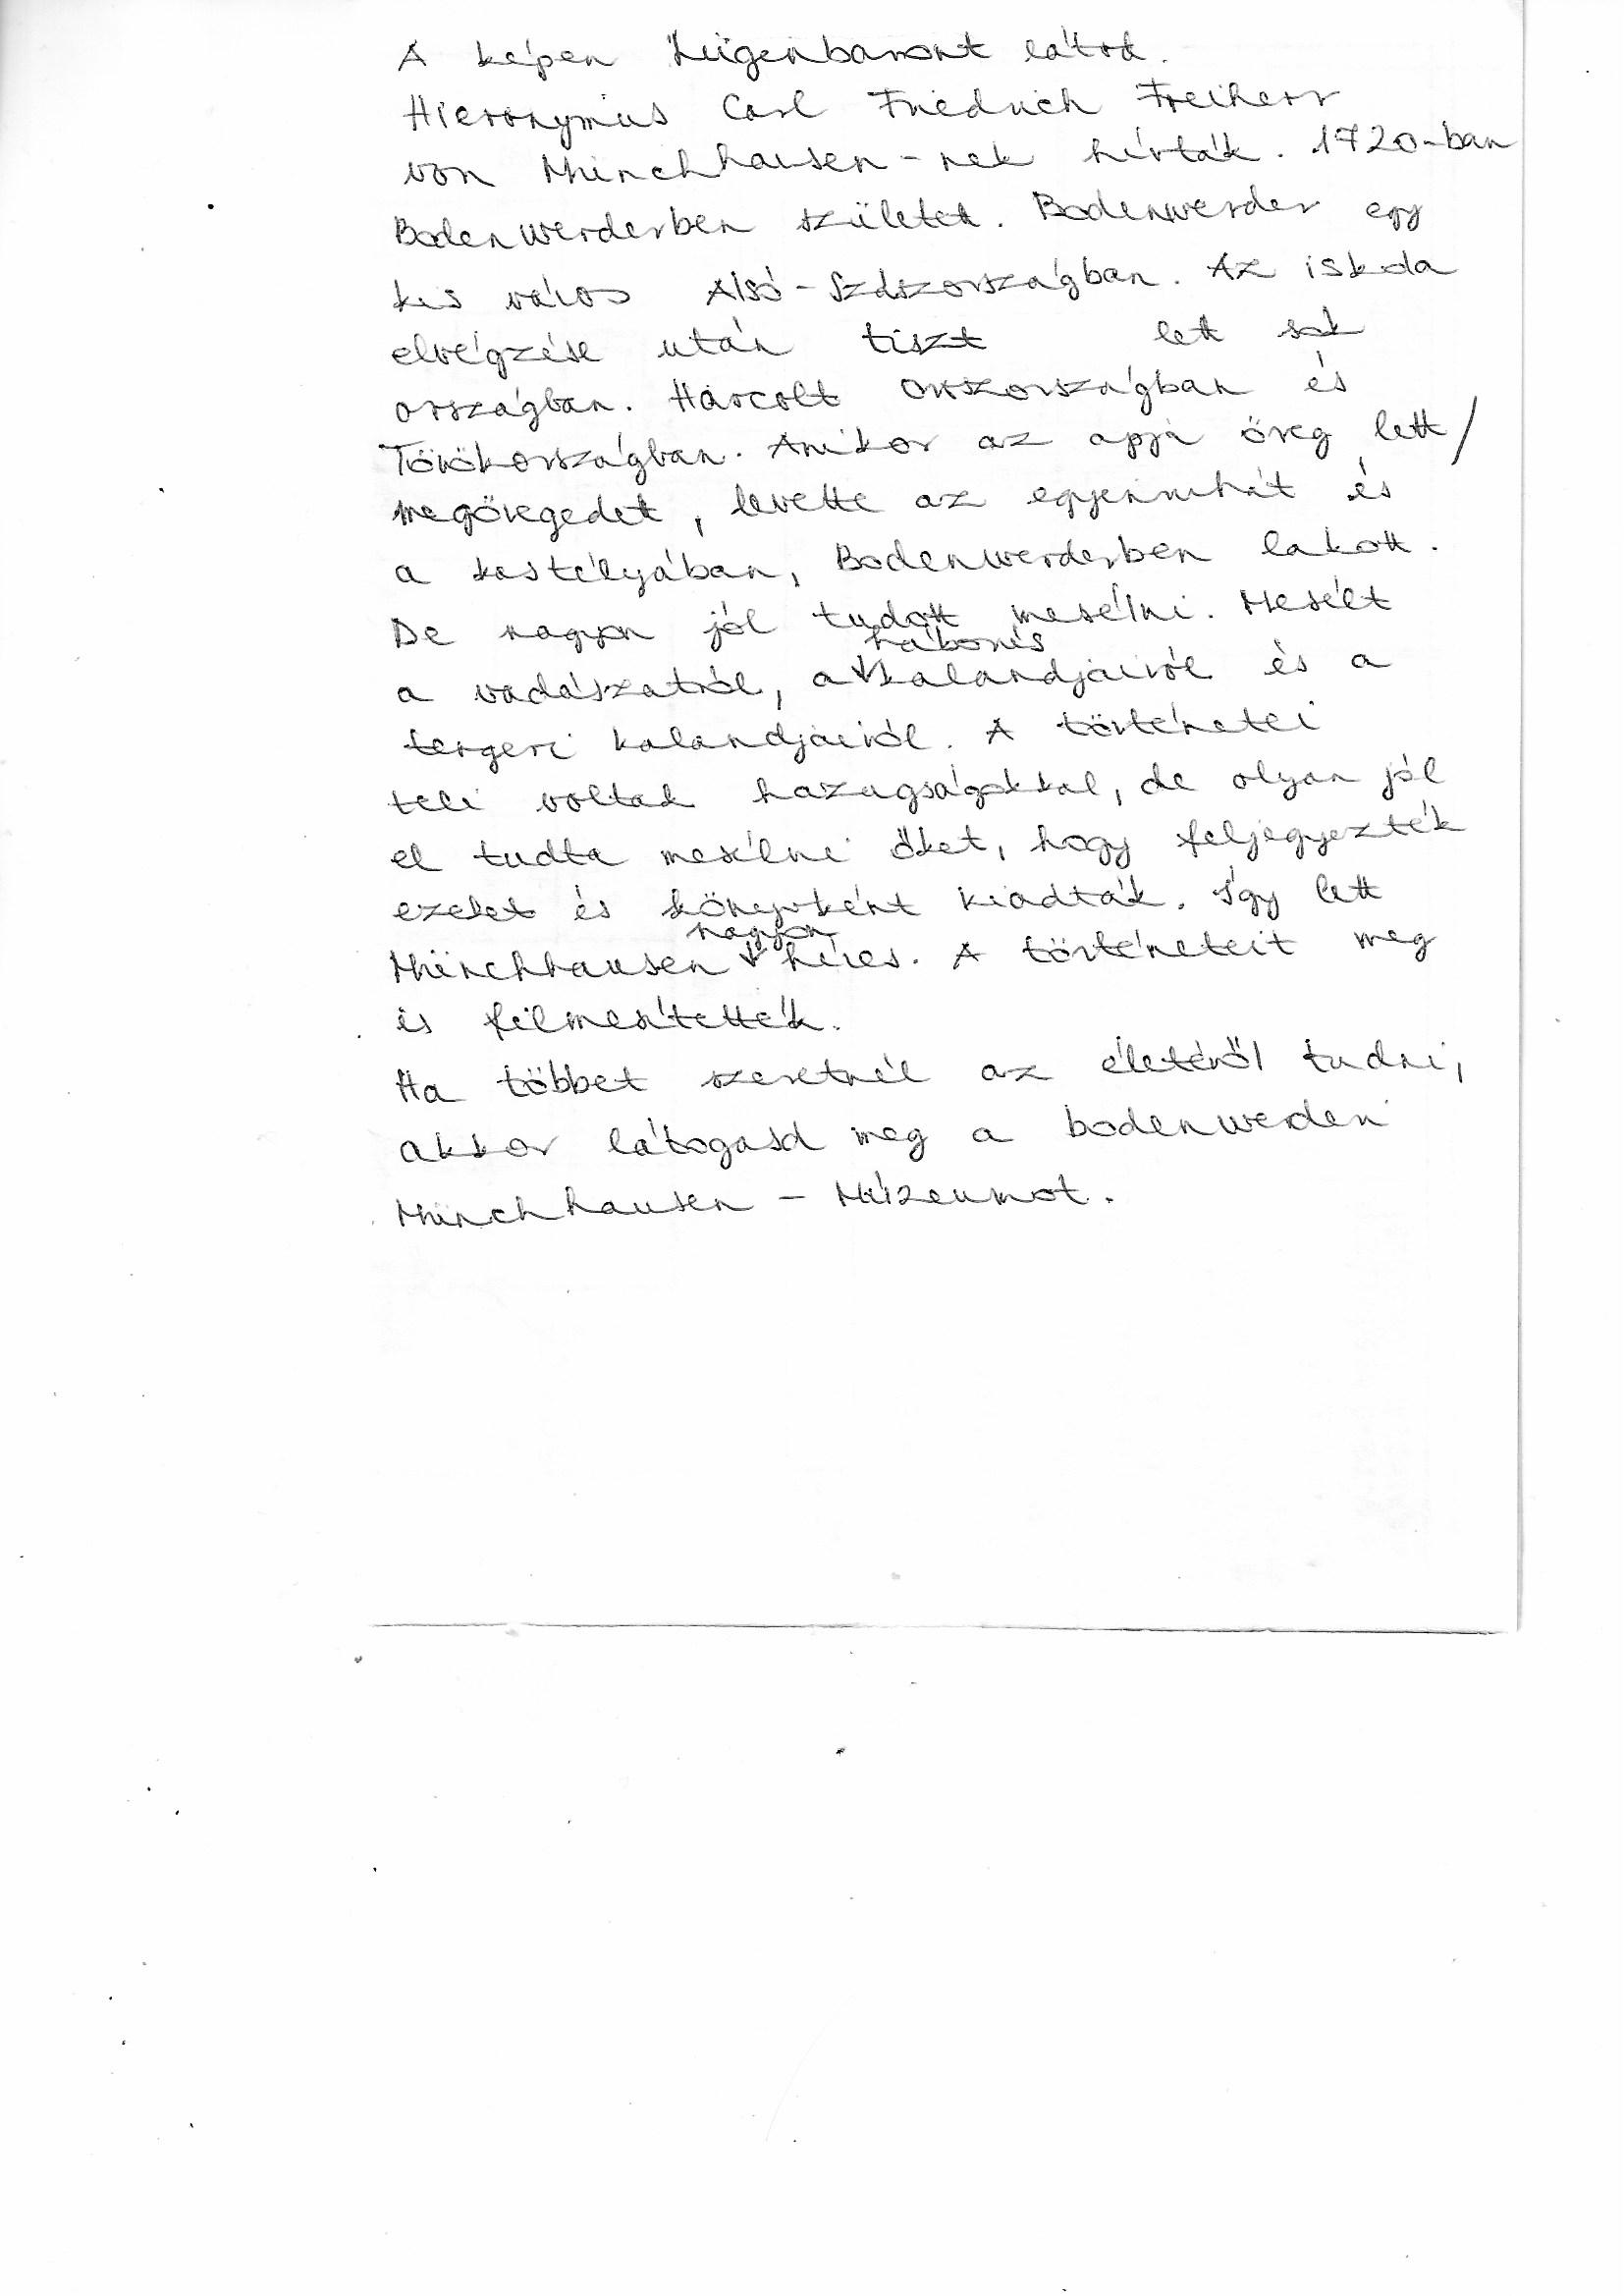 A képen Lügenbaront látod.
Hieronymus Carl Friedrich Freiherr
von Münchhausen-nek hívták. 1720-ban
Bodenwerderben született. Bodenwerder egy
kis város Alsó-Szászországban. Az iskola
elvégzése után tiszt lett sok
országban. Harcolt Oroszországban és
Törökországban. Amikor az apja öreg lett/
megöregedett, levette az egyenruhát és
a kastélyában, Bodenwerderben lakott.
De nagyon jól tudott mesélni. Mesélt
háborús
a vadászatról, a kalandjairól és a
tengeri kalandjairól. A történetei
teli voltak hazugságokkal, de olyan jól
el tudta mesélni őket, hogy feljegyezték
ezeket és könyvként kiadták. Így lett
nagyon
Münchhausen híres. A történeteit meg
is filmesítették.
Ha többet szeretnél az életéről tudni,
akkor látogasd meg a bodenwerderi
Münchhausen - Múzeumot.